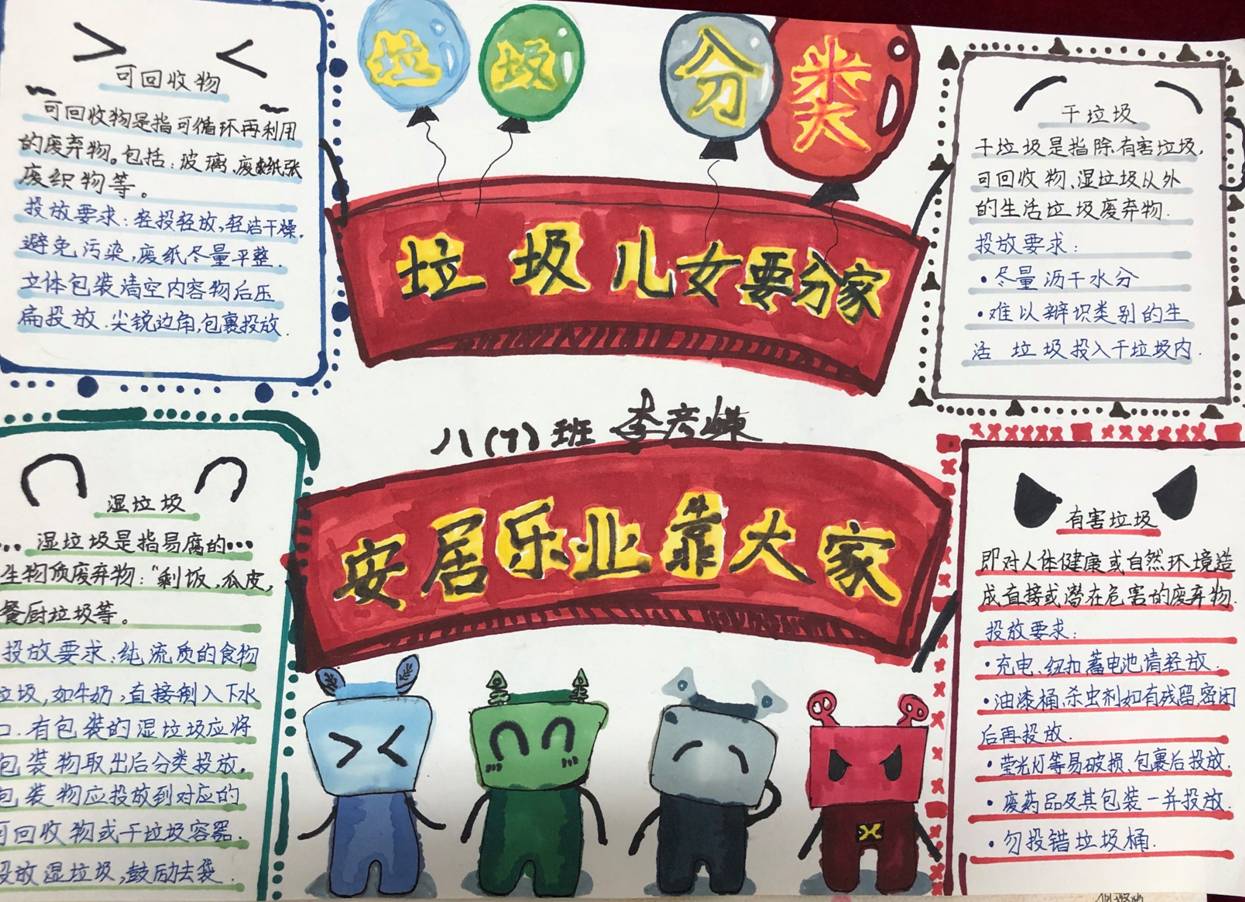 垃圾分类
垃圾儿女要分家
八(7)班 李彦
安居乐业靠大家
可回收物
可回收物是指可循环再利用
的废弃物。包括:玻璃、废纸张
废织物等。
投放要求:轻投轻放,轻洁干燥,
避免污染,废纸尽量平整.
立体包装清空内容物后压
扁投放.尖锐边角,包裹投放.
干垃圾
干垃圾是指除有害垃圾,
可回收物、湿垃圾以外
的生活垃圾废弃物.
投放要求:
·尽量沥干水分
·难以辨识类别的生
活 垃圾投入干垃圾内.
湿垃圾
湿垃圾是指易腐的
生物质废弃物:“剩饭、瓜皮,
餐厨垃圾等。
投放要求:纯流质的食物
垃圾,如牛奶,直接倒入下水
口.有包装的湿垃圾应将
包装物取出后分类投放,
包装物应投放到对应的
可回收物或干垃圾容器.
投放湿垃圾,鼓励去袋.
有害垃圾
即对人体健康或自然环境造
成直接或潜在危害的废弃物.
投放要求:
·充电、纽扣蓄电池请轻放.
·油漆桶、杀虫剂如有残留密闭
后再投放.
·荧光灯等易破损、包裹后投放.
·废药品及其包装一并投放.
·勿投错垃圾桶.